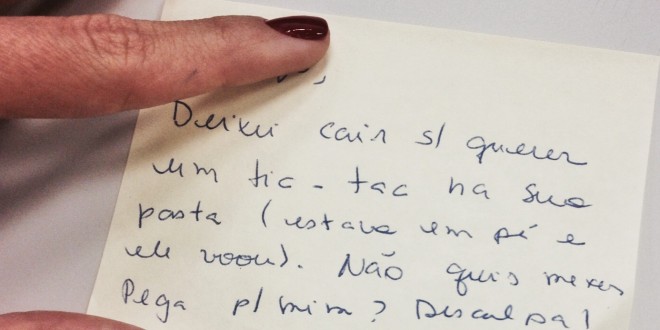 Deixei cair s/ querer
um tic-tac na sua
pasta (estava em pé e
ele voou). Não quis mexer
Pega p/ mim? Desculpa!